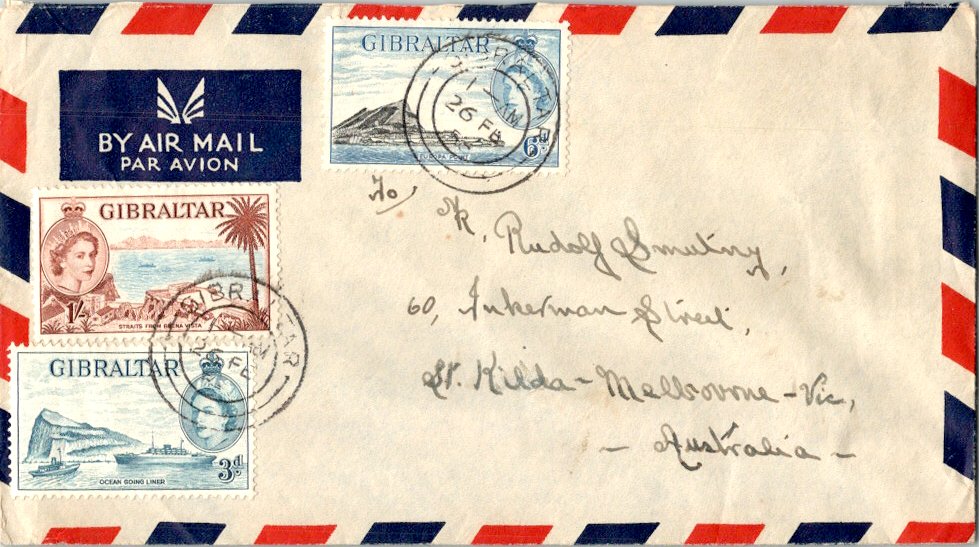 BY AIR MAIL
PAR AVION
GIBRALTAR
EUROPA POINT
6d
GIBRALTAR
12 AM
26 FE
GIBRALTAR
1/-
STRAITS FROM BUENA VISTA
GIBRALTAR
AM
26 FE
GIBRALTAR
3d
OCEAN GOING LINER
To,
Rudolf Smutny,
60, Inkerman Street,
St. Kilda - Melbourne - Vic,
- Australia -